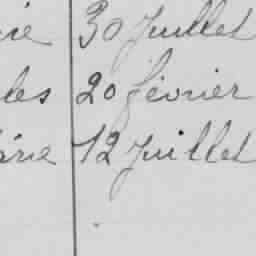 30 Juillet
les 20 février
12 Juillet